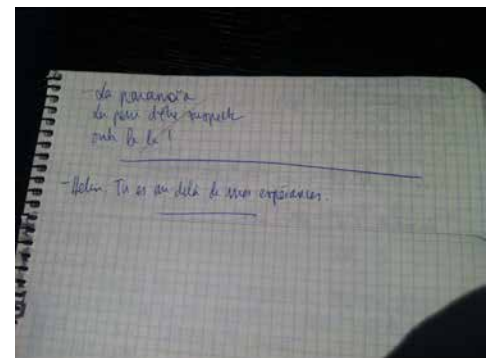 - La paranoïa
La peur d'être suspect
ouh la la !
- Helen. Tu es au delà de mes espérances.